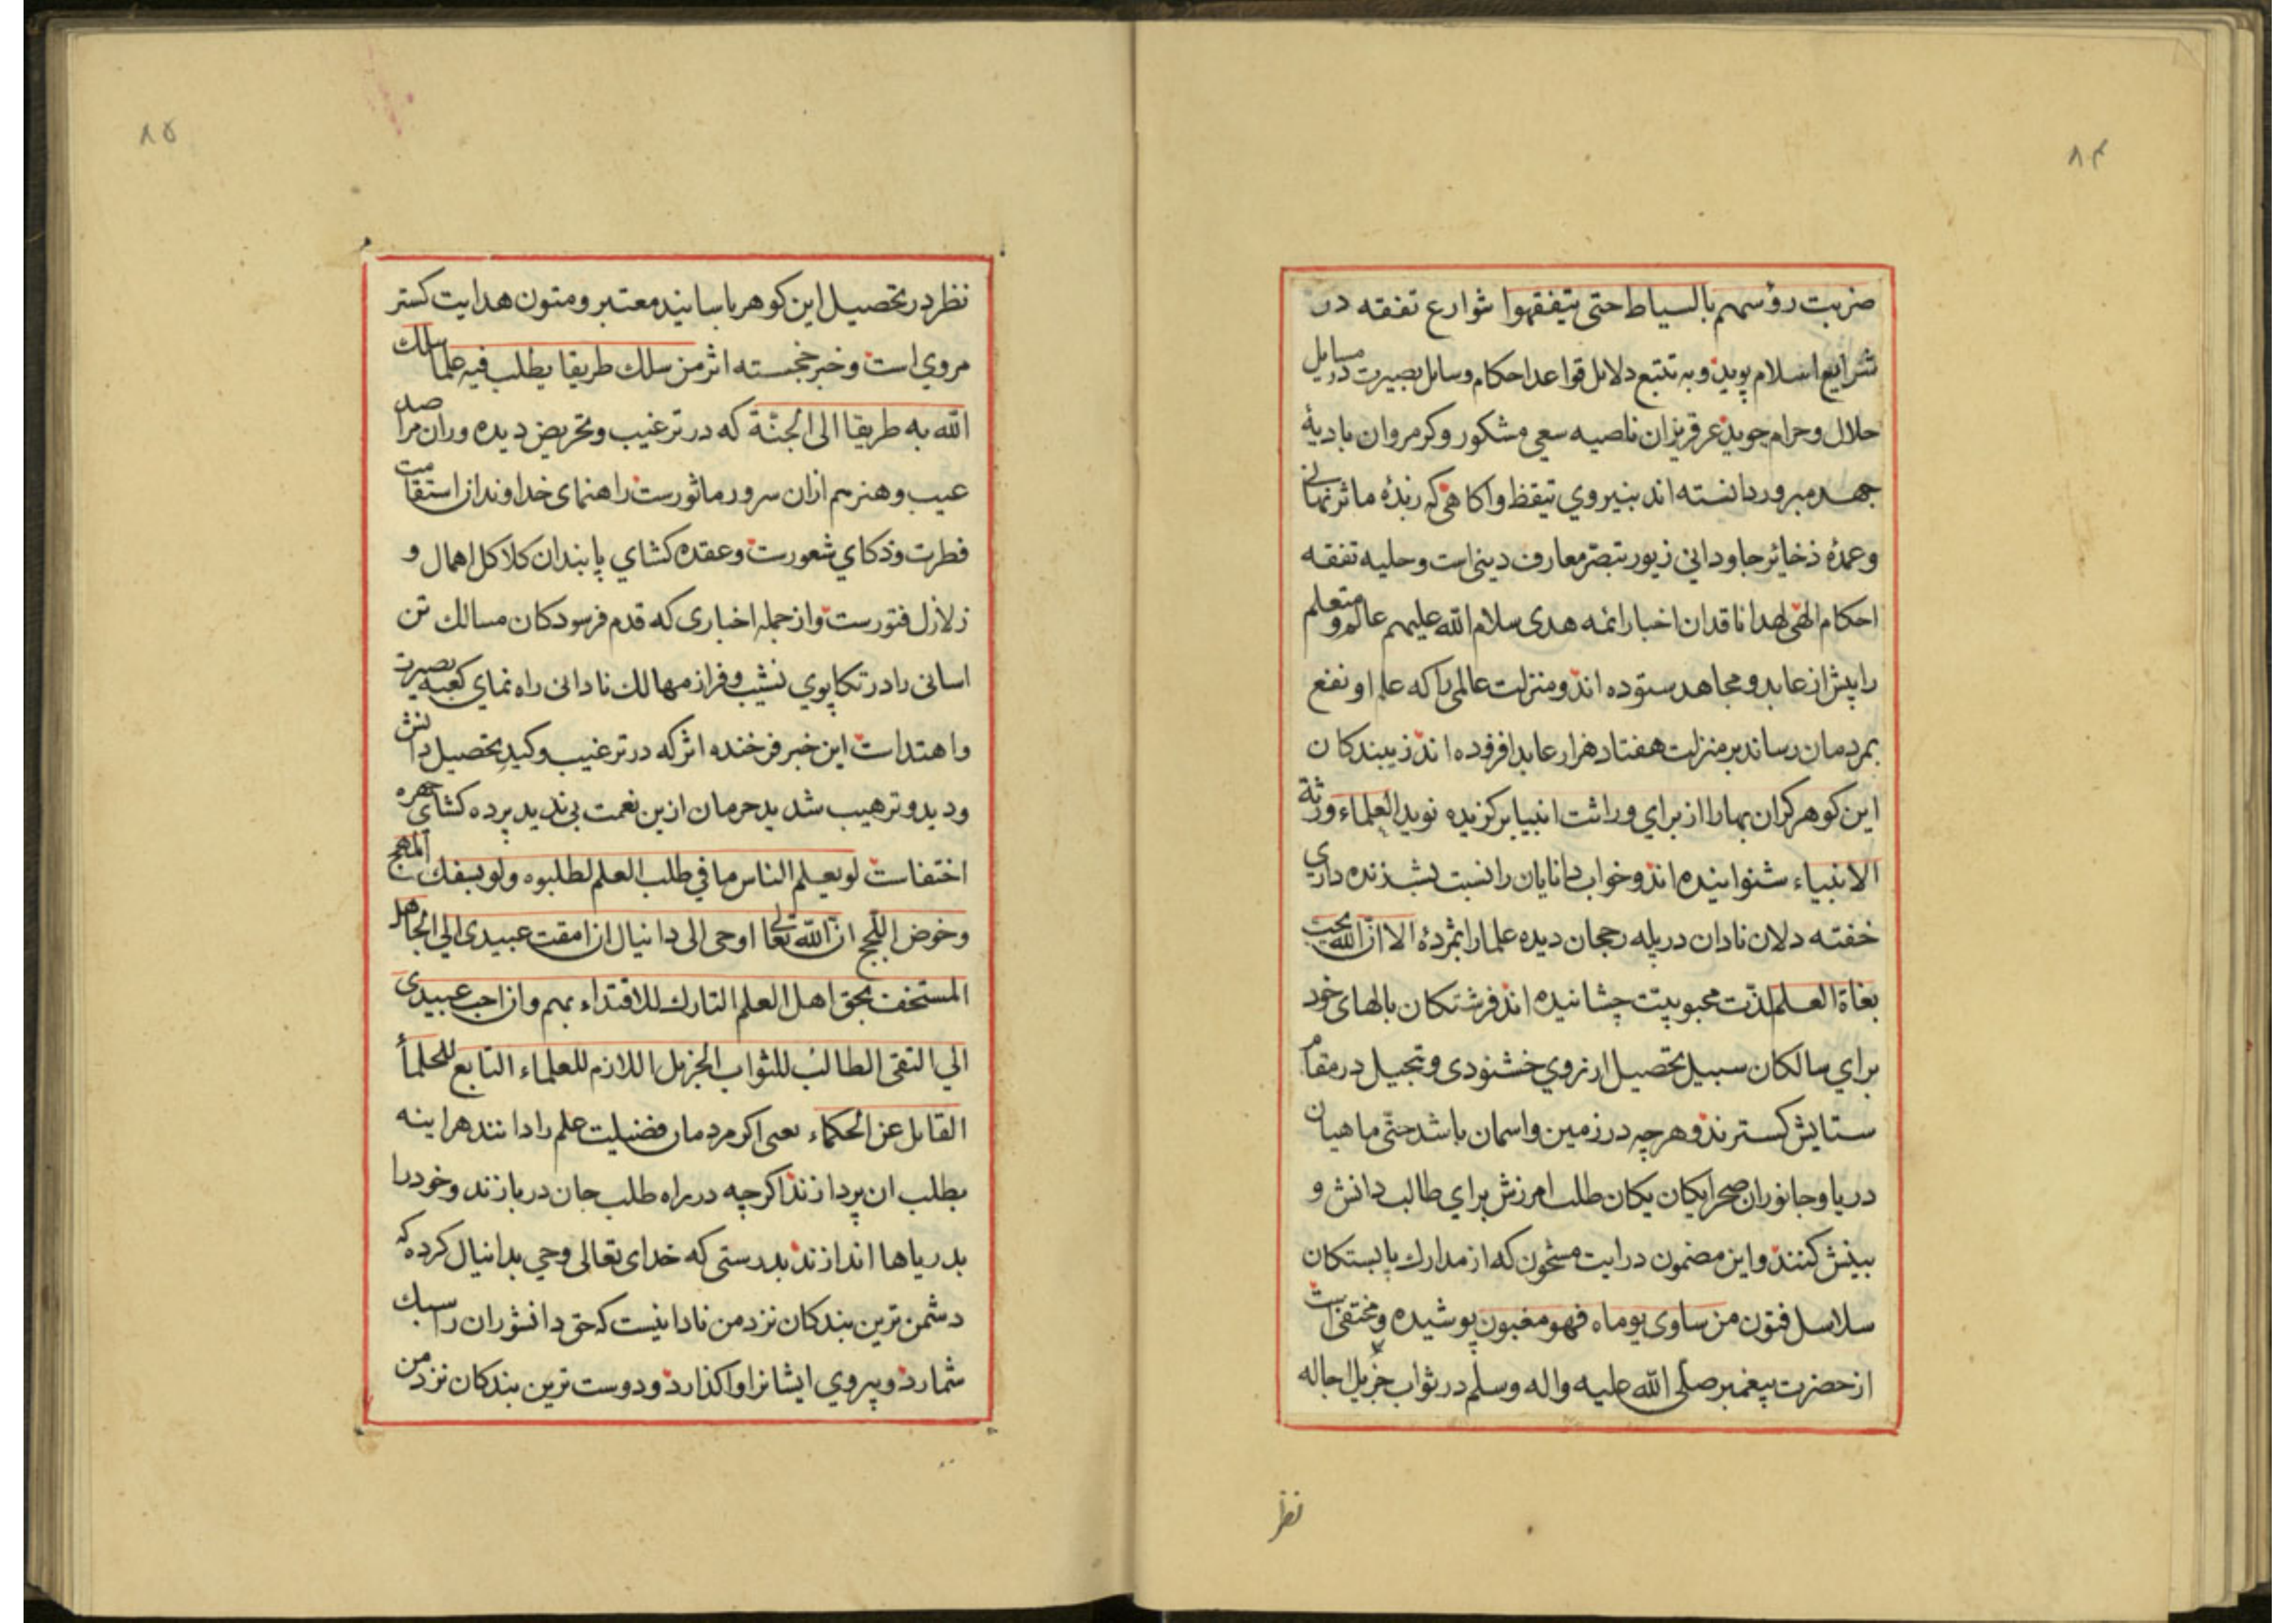 ۸۴
ضربت رؤسهم بالسیاط حتی یتفقهوا شوارع تفقه در
شرایع اسلام پویند و به تتبع دلایل قواعد احکام وسایل بصیرت در مسایل
حلال وحرام جویند عرق ریزان ناصیه سعی مشکور وکرمروان بادیهٔ
جهد مبرور دانسته اند بنیروی تیقظ واکاهی که زبدهٔ ماثر نهانی
وعمدهٔ ذخائر جاودانی زیور تبصر معارف دینی است وحلیه تفقه
احکام الهی لهذا ناقدان اخبار ائمه هدی سلام الله علیهم عالم و متعلم
را پیش از عابد و مجاهد ستوده اند ومنزلت عالمی را که علم او نفع
بمردمان رساند بر منزلت هفتاد هزار عابد افزوده اند زیبندکان
این کوهر کران بها را از برای وراثت انبیا برکزیده نوید العلماء ورثة
الانبیاء شنوانیده اند وخواب دانایان را نسبت بشب زنده داری
خفته دلان نادان در پله رجحان دیده علما را بمژدهٔ الا ان الله یحب
بغاة العلم لذت محبوبیت چشانیده اند فرشتکان بالهای خود
برای سالکان سبیل تحصیل از روی خشنودی وتبجیل در مقام
ستایش کسترند و هر چه در زمین واسمان باشد حتی ماهیان
دریا وجانوران صحرا یکان یکان طلب امرزش برای طالب دانش و
بینش کنند و این مضمون درایت مشحون که از مدارک پابستکان
سلاسل فتون من ساوی یوماه فهو مغبون پوشیده ومختفی است
از حضرت پیغمبر صلی الله علیه واله وسلم در ثواب جزیل اجاله
نظر
۸۵
نظر در تحصیل این کوهر باسانید معتبر ومتون هدایت کستر
مروی است وخبر خجسته اثر من سلک طریقا یطلب فیه علما سلک
الله به طریقا الی الجنة که در ترغیب وتحریص دیده وران مراصد
عیب وهنر هم ازان سرور ماثورست راهنمای خداوندان استقامت
فطرت وذکای شعورست وعقده کشای پابندان کلاکل اهمال و
زلازل فتورست و از جمله اخباری که قدم فرسودکان مسالک تن
اسانی را در تکاپوی نشیب وفراز مهالک نادانی راه نمای کعبه بصیرت
واهتداست این خبر فرخنده اثر که در ترغیب وکید تحصیل دانش
ودید وترهیب شدید حرمان ازین نعمت بی ندید پرده کشای چهره
اختفاست لو یعلم الناس ما فی طلب العلم لطلبوه ولو بسفک المهج
وخوض اللجج ان الله تعالی اوحی الی دانیال ان امقت عبیدی الی الجاهل
المستخف بحق اهل العلم التارک للاقتداء بهم وان احب عبیدی
الی التقی الطالب للثواب الجزیل اللازم للعلماء التابع للحلماء
القابل عن الحکماء یعنی اکر مردمان فضیلت علم را دانند هراینه
بطلب ان پردازند اکرچه در راه طلب جان دربازند وخود را
بدریاها اندازند بدرستی که خدای تعالی وحی بدانیال کرده که
دشمن ترین بندکان نزد من نادانیست که حق دانشوران را سبک
شمارد و پیروی ایشانرا واکذارد و دوست ترین بندکان نزد من